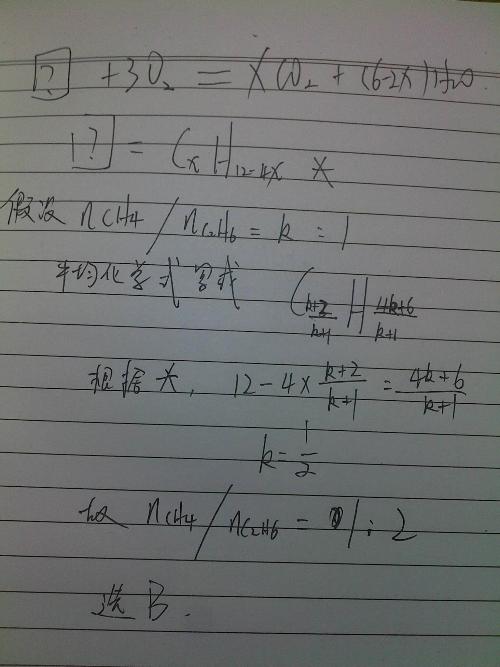 [?] + 3O₂ = XCO₂ + (6-2X)H₂O.
[?] = CₓH₁₂₋₄ₓ *
假设 nCH₄ / nC₂H₆ = k : 1
平均化学式写成 C_{\frac{k+2}{k+1}} H_{\frac{4k+6}{k+1}}
根据*, 12-4×\frac{k+2}{k+1} = \frac{4k+6}{k+1}
k = \frac{1}{2}
故 nCH₄ / nC₂H₆ = 1:2
选 B.